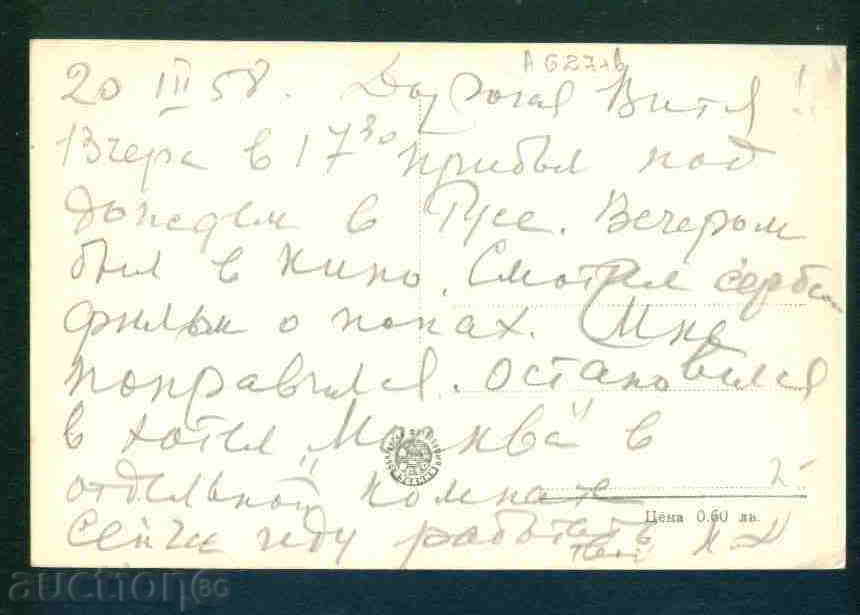 А 627-в
20 III 58. Дорогая Витя!!
Вчера в 17³⁰ прибыл под
дождем в Русе. Вечером
был в кино. Смотрел сербск
фильм о попах. Мне
понравился. Остановился
в хотел „Москва" в
отдельной комнате
Сейчас иду работать
Цена 0.60 лв.
auctionBG